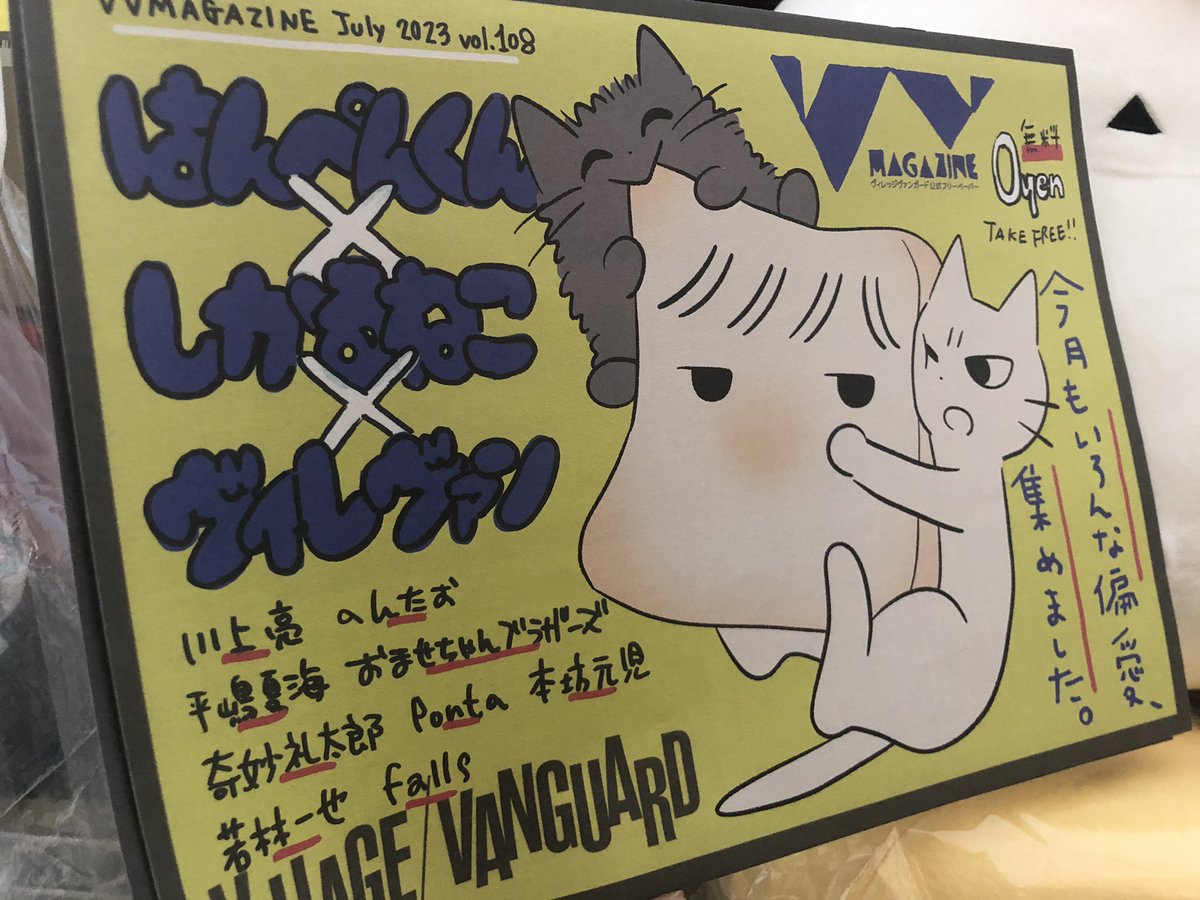 VVMAGAZINE July 2023 vol.108
はんぺんくん
×
しかるねこ
×
ヴィレヴァン
VV
MAGAZINE
ヴィレッジヴァンガード公式フリーペーパー
無料
0yen
TAKE FREE!!
今月もいろんな偏愛、
集めました。
川上亮 へんたお
平嶋夏海 おませちゃんブラザーズ
奇妙礼太郎 Ponta 本坊元児
若林一也 falls
VILLAGE/VANGUARD